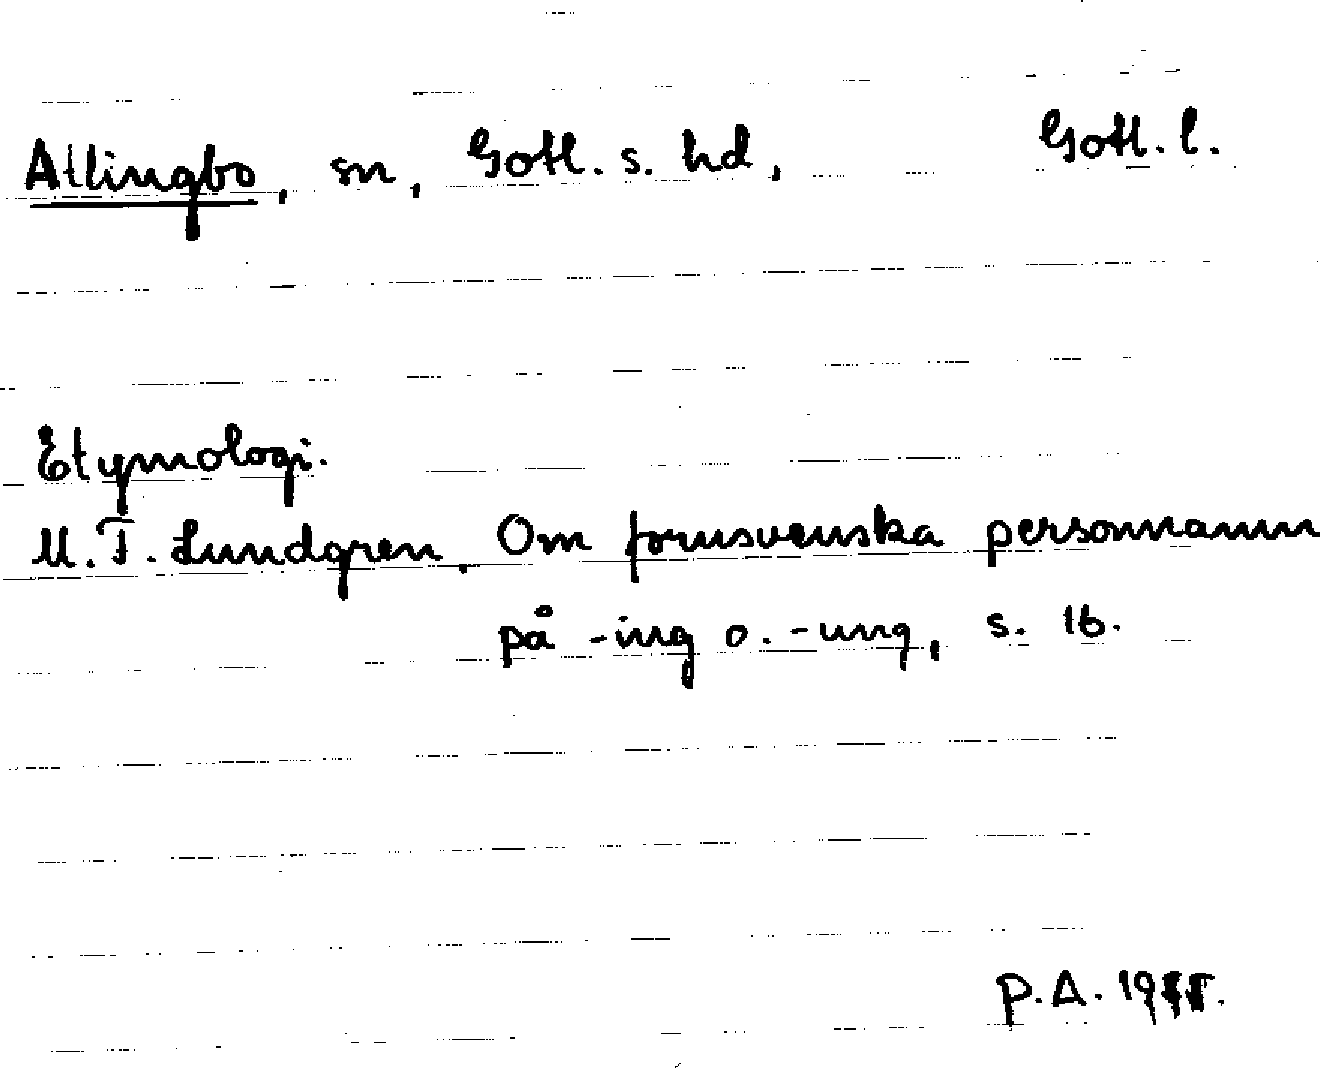 Allingbo, sn, Gotl. s. hd, Gotl. l.
Etymologi.
M. F. Lundgren, Om fornsvenska personnamn
på -ing o. -ung, s. 16.
P.A.